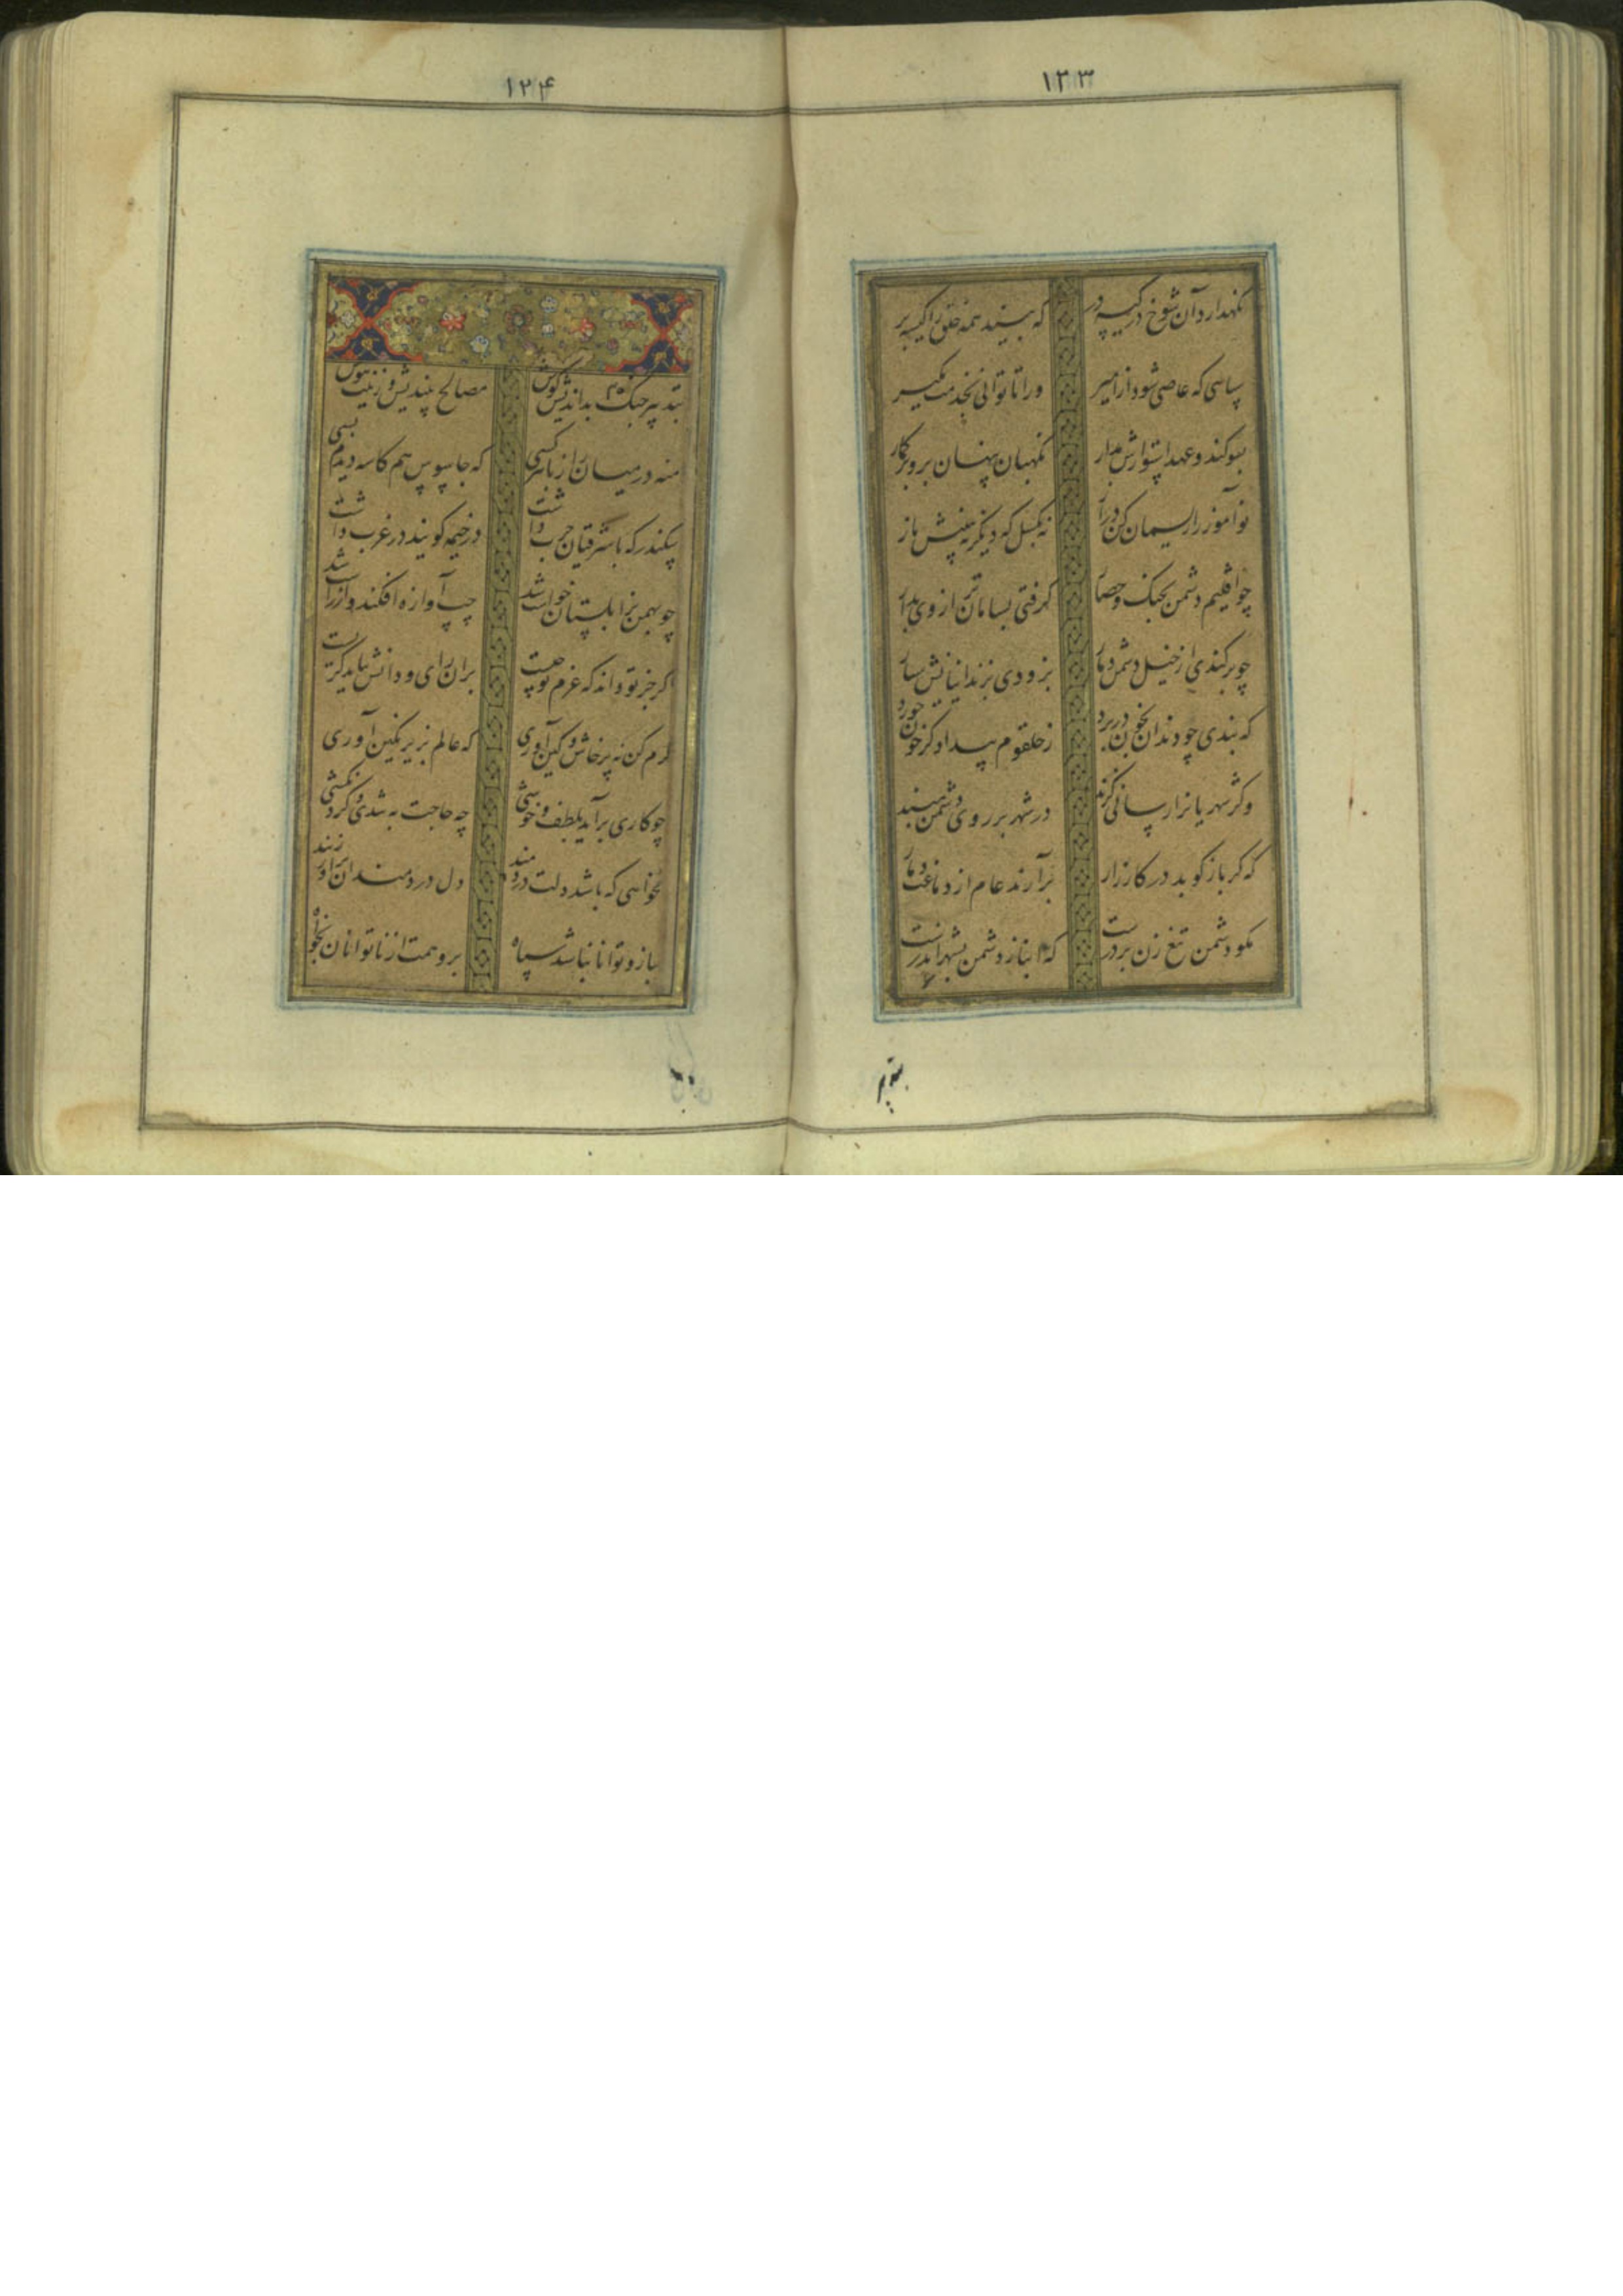 ۱۲۳
نگهدارد آن شوخ در کیسه در
که بیند همه خلق را کیسه بر
سپاهی که عاصی شود از امیر
ورا تا توانی بخدمت مگیر
بسوگند و عهد استوارش مدار
نگهبان پنهان برو بر گمار
نوآموز را ریسمان کن دراز
نه بگسل که دیگر نه بینیش باز
چو اقلیم دشمن بجنگ و حصار
گرفتی بسامان تر از وی بدار
چو برکندی از خیل دشمن دمار
بزودی بزندانیانش سپار
که بندی چو دندان بخون در برد
ز حلقوم بیدادگر خون خورد
وگر شهریانرا رسانی گزند
در شهر بر روی دشمن مبند
که گر باز کوبد در کارزار
برآرند عام از دماغت دمار
مگو دشمن تیغ زن بر درست
که انباز دشمن بشهر اندرست
بتدبیر
۱۲۴
بتدبیر جنگ بداندیش کوش
مصالح بیندیش و نیت بپوش
منه در میان راز با هر کسی
که جاسوس هم کاسه دیدم بسی
سکندر که با شرقیان حرب داشت
در خیمه گویند در غرب داشت
چو بهمن بزابلستان خواست شد
چپ آوازه افکند و از راست شد
اگر جز تو داند که عزم تو چیست
بران رای و دانش بباید گریست
کرم کن نه پرخاش و کین آوری
که عالم بزیر نگین آوری
چو کاری برآید بلطف و خوشی
چه حاجت به تندی و گردنکشی
نخواهی که باشد دلت دردمند
دل دردمندان برآور ز بند
ببازو توانا نباشد سپاه
برو همت از ناتوانان بخواه